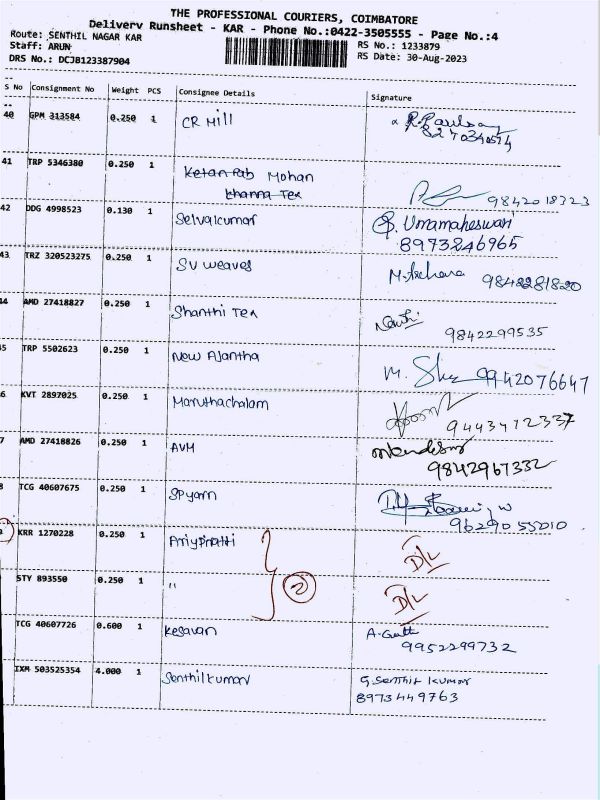 THE PROFESSIONAL COURIERS, COIMBATORE
Delivery Runsheet - KAR - Phone No.:0422-3505555 - Page No.:4
Route: SENTHIL NAGAR KAR
RS No.: 1233879
Staff: ARUN
RS Date: 30-Aug-2023
DRS No.: DCJB123387904
S No Consignment No Weight PCS Consignee Details Signature
40 GPM 313584 0.250 1 CR Mill
41 TRP 5346380 0.250 1 Ketan Pab Mohan
Khanna Tex 9842018323
42 DDG 4998523 0.130 1 Selvalkumar S. Umamaheswari
8973246965
43 TRZ 320523275 0.250 1 SV weaves M. Archana 9842281820
44 AMD 27418827 0.250 1 Shanthi Tex
9842299535
45 TRP 5502623 0.250 1 New Ajantha M. 9942076647
6 KVT 2897025 0.250 1 Maruthachalam
9443412337
7 AMD 27418826 0.250 1 AVM
9842967332
8 TCG 40607675 0.250 1 SP yarn
9629055010
9 KRR 1270228 0.250 1 D/L
STY 893550 0.250 1 " 2 D/L
TCG 40607726 0.600 1 Kesavan
9952299732
IXM 503525354 4.000 1 Senthilkumar G. Senthil Kumar
8973449763